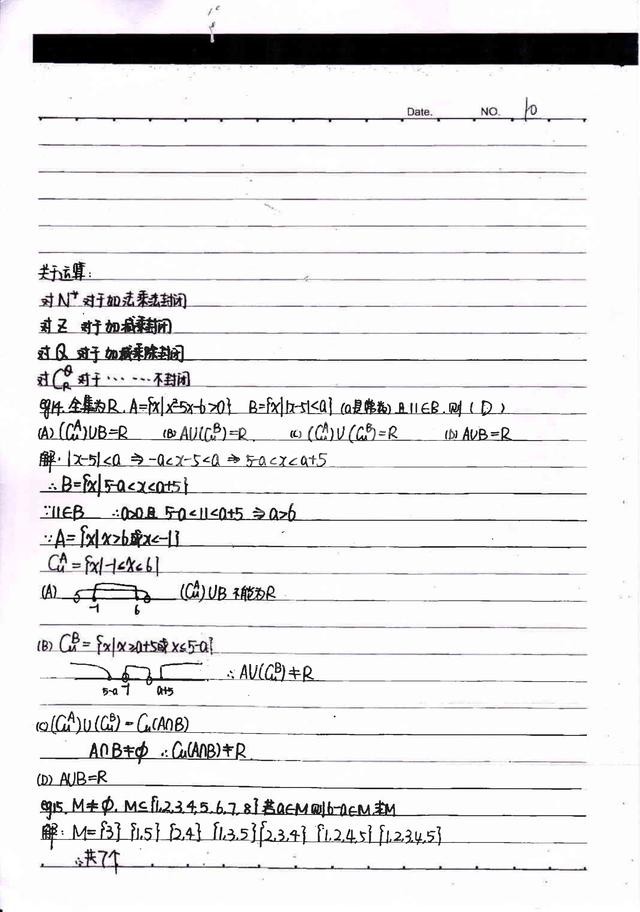 Date. NO. 10
关于运算:
对N⁺ 对于加法乘法封闭
对Z 对于加减乘封闭
对Q 对于加减乘除封闭
对C_R^Q 对于……不封闭
eg14. 全集为R. A={x|x²-5x-6>0} B={x||x-5|<a} (a是常数) 且11∈B. 则 (D)
(A) (C_u^A)∪B=R (B) A∪(C_u^B)=R (C) (C_u^A)∪(C_u^B)=R (D) A∪B=R
解: |x-5|<a ⇒ -a<x-5<a ⇒ 5-a<x<a+5
∴B={x|5-a<x<a+5}
∵11∈B ∴a>0且 5-a<11<a+5 ⇒ a>6
∵A={x|x>6或x<-1}
C_u^A={x|-1≤x≤6}
(A) -1 6 (C_u^A)∪B 不能为R
(B) C_u^B={x|x≥a+5或x≤5-a}
5-a -1 a+5 ∴A∪(C_u^B)≠R
(C) (C_u^A)∪(C_u^B)=C_u(A∩B)
A∩B≠∅ ∴C_u(A∩B)≠R
(D) A∪B=R
eg15. M≠∅. M⊆{1,2,3,4,5,6,7,8} 若a∈M则6-a∈M.求M
解: M={3} {1,5} {2,4} {1,3,5} {2,3,4} {1,2,4,5} {1,2,3,4,5}
∴共7个